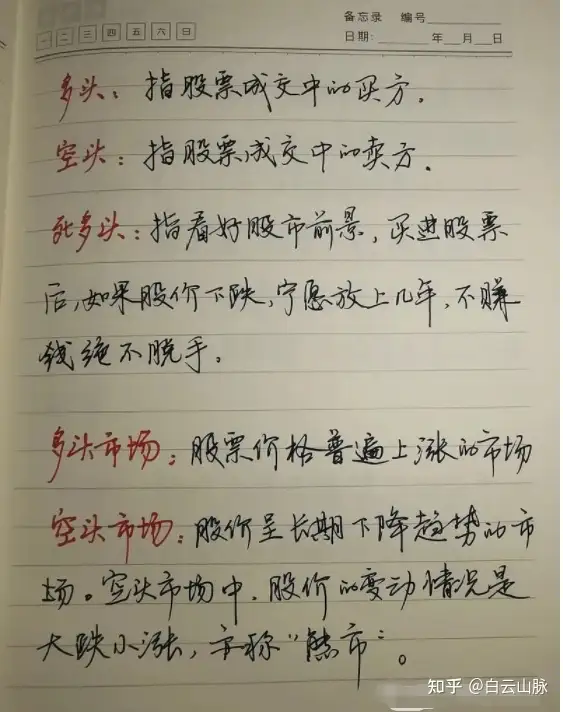 备忘录 编号
一 二 三 四 五 六 日
日期: 年 月 日
多头：指股票成交中的买方。
空头：指股票成交中的卖方。
死多头：指看好股市前景，买进股票
后，如果股价下跌，宁愿放上几年，不赚
钱绝不脱手。
多头市场：股票价格普遍上涨的市场
空头市场：股价呈长期下降趋势的市
场。空头市场中，股价的变动情况是
大跌小涨，亦称“熊市”。
知乎 @白云山脉